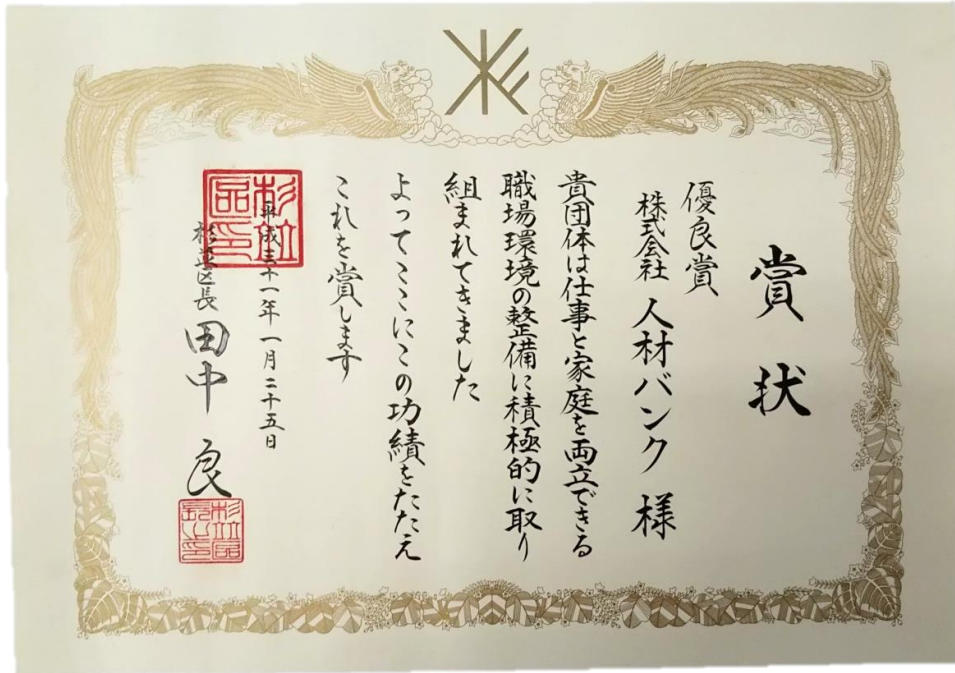 賞状
優良賞
株式会社 人材バンク 様
貴団体は仕事と家庭を両立できる
職場環境の整備に積極的に取り
組まれてきました
よってここにこの功績をたたえ
これを賞します
平成三十一年一月二十五日
杉並区長 田中 良
杉並区印
杉並区長之印